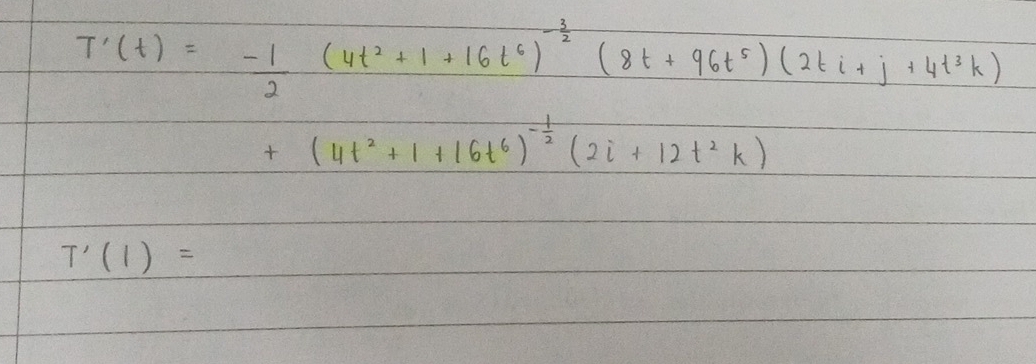 T'(t) = -1/2 (4t² + 1 + 16t⁶)^(-3/2) (8t + 96t⁵)(2ti + j + 4t³k)
+ (4t² + 1 + 16t⁶)^(-1/2) (2i + 12t²k)
T'(1) =